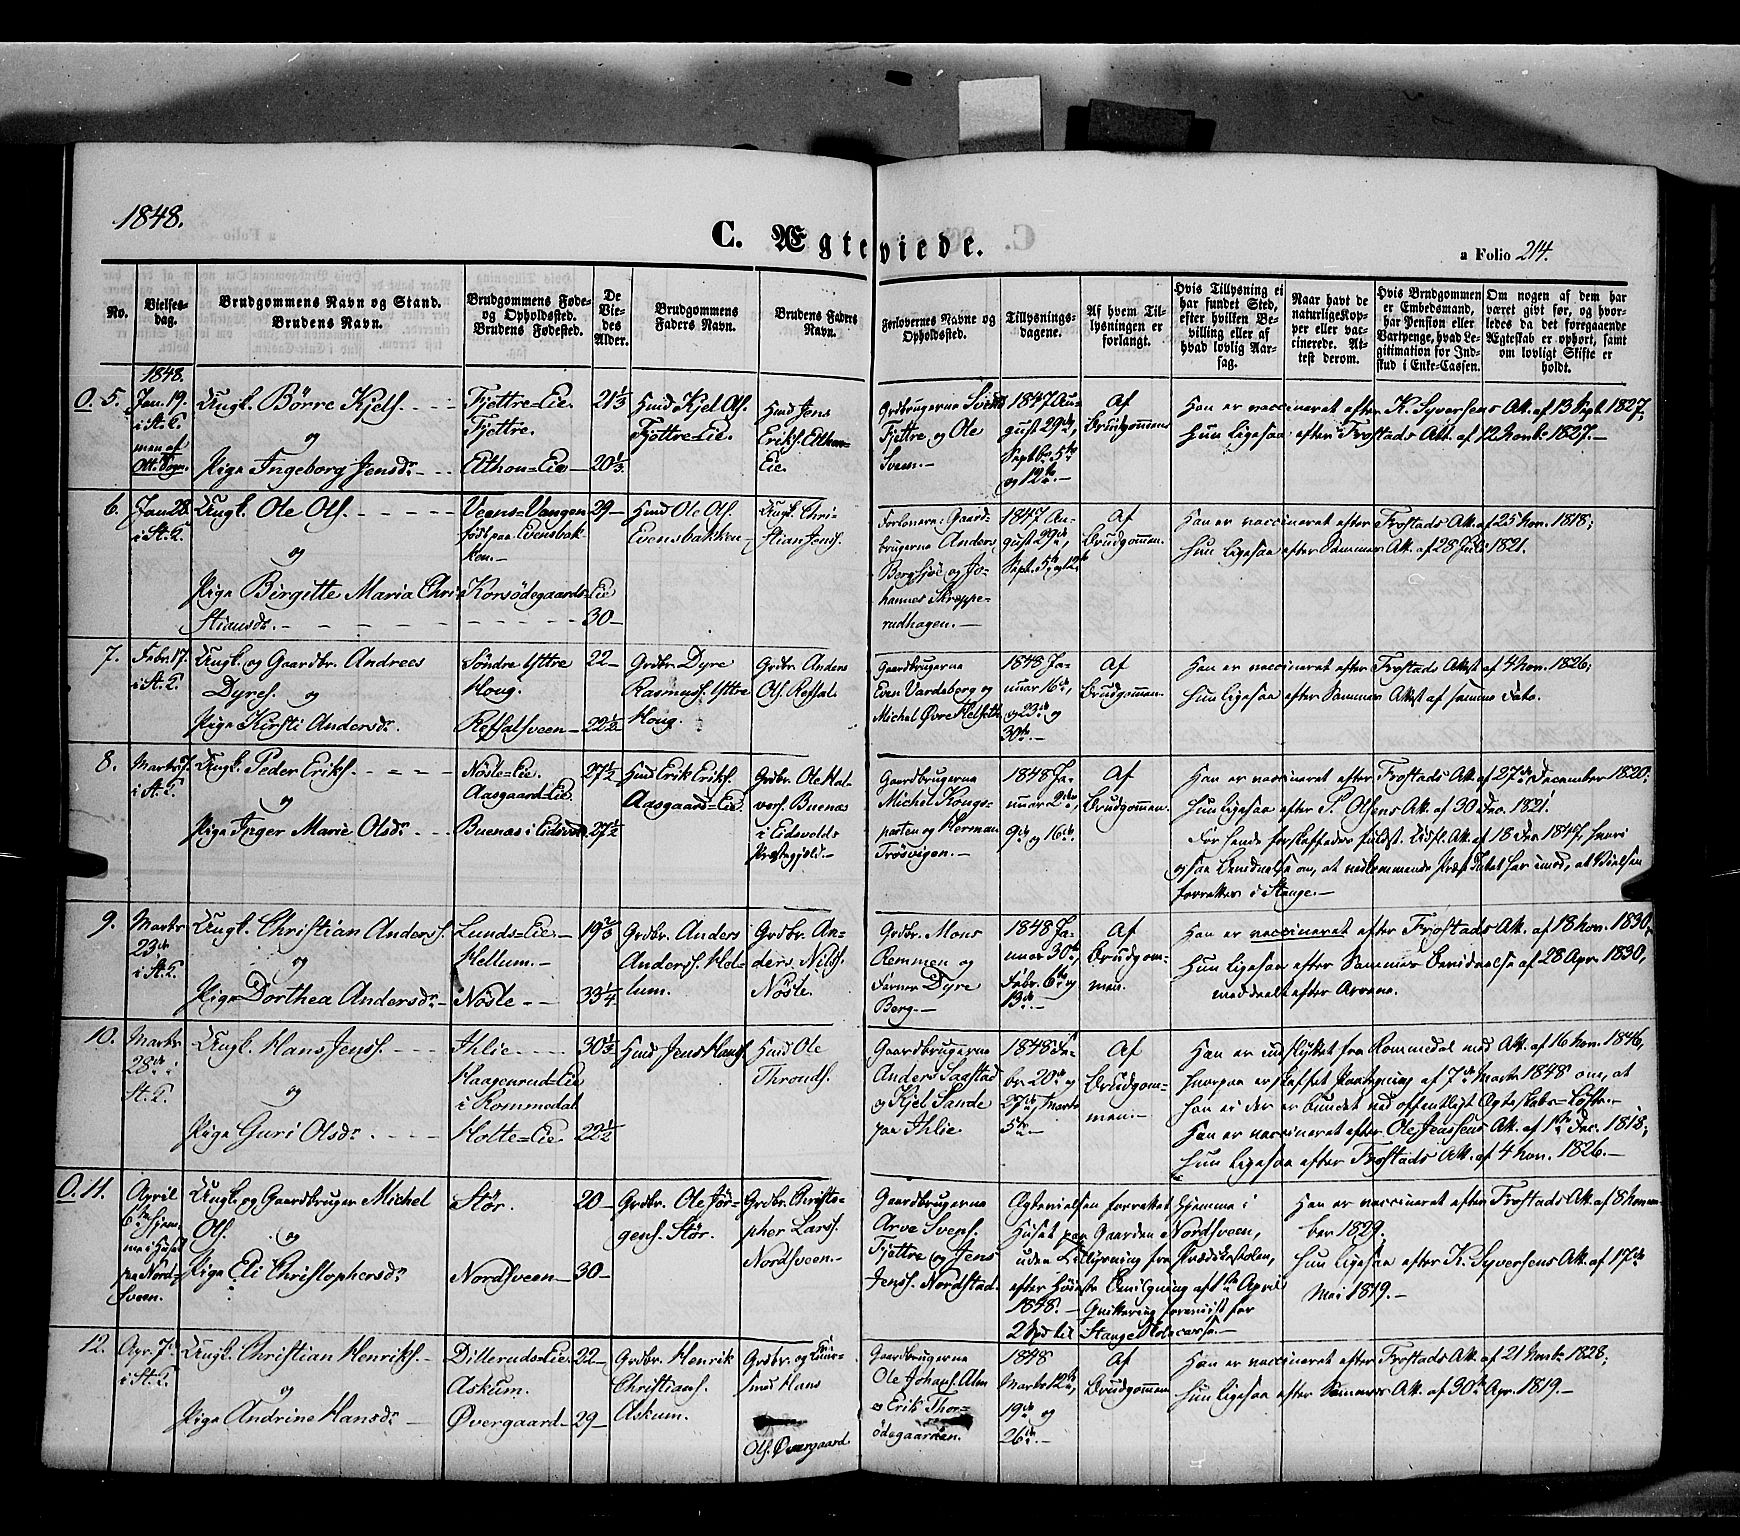 1848.
C. Ægteviede.
a Folio 214.
No.
Vielses-
dag.
Brudgommens Navn og Stand.
Brudens Navn.
Brudgommens Føde-
og Opholdssted.
Brudens Fødested.
De
Vie-
des
Alder.
Brudgommens
Faders Navn.
Brudens Faders
Navn.
Forlovernes Navne og
Opholdssted.
Tillysnings-
dagene.
Af hvem Til-
lysningen er
forlangt.
Hvis Tillysning ei
har fundet Sted,
efter hvilken Be-
villing eller af
hvad lovlig Aar-
sag.
Naar havt de
naturlige Kop-
per eller vac-
cinerede. At-
test derom.
Hvis Brudgommen
er Embedsmand,
har Pension eller
Vartpenge, hvad Le-
gitimation for Ind-
skud i Enke-Cassen.
Om nogen af dem har
været gift før, og hvor-
ledes da det foregaaende
Ægteskab er ophørt, samt
om lovligt Skifte er
holdt.
1848.
O. 5.
Jan. 19.
i St. K.
men af
Ott. Sogn.
Ungk. Børre Kjels.
og
Pige Ingeborg Jensdr
Fjettre-Eie.
Fjettre.
Elthon-Eie
21 1/3
20 1/3
Huusd Kjel Ols.
Fjettre-Eie.
Huusd Jens
Eriks. Elthon-
Eie.
Grdbrugerne
Fjettre og Ole
Sveen.
1847 Au-
gust 29de,
Septbr 5te
og 12te.
Af
Brudgommen.
Han er vaccineret efter K. Syversens Att. af 13 Sept. 1827;
Hun ligesaa efter Frostads Att. af 12 Novbr 1827.
6.
Jan 28.
i St. K.
Ungk. Ole Ols.
og
Pige Birgitte Maria Chri-
stiansdr.
Veens-Vangen
født paa Evensbak-
ken.
Korsødegaards-Eie
29
30
Huusd Ole Ols.
Evensbakken
Ungk. Chri-
stian Jens.
Forlovere: Gaard-
brugerne Anders
Bergsjøe og Jo-
hannes Skreppe-
rudhagen.
1847 Au-
gust 29de,
Sept. 5te og 12te
Af
Brudgommen.
Han er vaccineret efter Frostads Att. af 25 Nov. 1818;
Hun ligesaa efter Sammes Att. af 28 Juli 1821.
7.
Febr. 17.
i St. K.
Ungk. og Gaardbr. Andreas
Dyres. og
Pige Kirsti Andersdr
Søndre Yttre
Houg.
Refsalsveen
22
22 1/2
Grdbr. Dyre
Rasmuss. Yttre
Houg.
Grdbr. Anders
Ols. Refsal
Gaardbrugerne
Even Vardeberg og
Michel Øvre Helseth
1848 Ja-
nuar 16de,
og 23de og
30te.
Af
Brudgommen.
Han er vaccineret efter Frostads Attest af 4 Nov. 1826;
Hun ligesaa efter Sammes Attest af samme Dato.
8.
Marts 17.
i St. K.
Ungk. Peder Eriks.
og
Pige Inger Marie Olsdr
Nøsle-Eie.
Aasgaard-Eie.
Buenas i Eidsvold
27 1/2
27 1/2
Huusd Erik Eriks.
Aasgaard-Eie.
Grdbr. Ole Hal-
vors. Buenas
i Eidsvolds
Præstegjeld.
Gaardbrugerne
Michel Kongs-
parten og Herman
Trøsvigen.
1848 Ja-
nuar 2den,
9de og 16de
Af
Brudgommen.
Han er vaccineret efter Frostads Att. af 27de December 1820;
Hun ligesaa efter P. Olsens Att. af 30 Dec. 1821.
For hende forskaffedes fuldst. Att. af 18 Jan 1847, hvori
ogsaa Bevidnelse om, at vedkommende Præst Intet har imod, at Vielsen
forrettes i Stange.
9.
Marts
23de
i St. K.
Ungk. Christian Anders.
og
Pige Dorthea Andersdr
Lunds-Eie
Hellum.
Nøsle
19 2/3
33 1/4
Grdbr. Anders
Anderss. Hel-
lum.
Grdbr. An-
ders Nils.
Nøsle.
Grdbr. Mons
Remmen og
Dyre
Berg.
1848 Ja-
nuar 30te,
Febr. 6te og
13de.
Af
Brudgom-
men.
Han er vaccineret efter Frostads Att. af 18 Nov. 1830,
Hun ligesaa efter Sammes Bevidnelse af 28 Apr. 1830,
meddeelt efter Arrene.
10.
Marts
28de i
St. K.
Ungk. Hans Jens.
og
Pige Guri Olsdr.
Ihlie
Haagenrud-Eie
i Rommedal
Holte-Eie
30 1/3
22 1/2
Huusd Jens Hans.
Huusd Ole
Thronds.
Gaardbrugerne
Anders Saastad
og Kjel Sande
paa Ihlie.
1848 Fe-
br. 20de og
27de, Marts
5te.
Af
Brudgom-
men.
Han er indflyttet fra Rommedal med Att. af 16 Nov. 1846,
hvorpaa er skaffet Paategning af 7de Marts 1848 om, at
han ei der er bundet ved offentligt Ægteskabs-Løfte.
Han er vaccineret efter Ole Jenssens Att. af 1ste Dec. 1818;
Hun ligesaa efter Frostads Att. af 4 Nov. 1826.
O. 11.
April
6te hjem-
me i Huset
paa Nord-
sveen.
Ungk. og Gaardbruger Michel
Ols. og
Pige Eli Christophersdr
Stør.
Nordsveen
20
30
Grdbr. Ole Jør-
gens. Stør.
Grdbr. Christo-
pher Larss.
Nordsveen
Gaardbrugerne
Arve Svens.
Fjettre og Jens
Jens. Nordstad.
Ægtevielsen forrettet hjemme i
Huset paa Gaarden Nordsveen,
uden Tillysning fra Prædikestolen,
efter Høieste Bevilgning af 1ste April
1848. Quittering foreviist for
2 Spd til Stange Skolecasse.
Han er vaccineret efter Frostads Att. af 8 Novem-
ber 1829.
Hun ligesaa efter K. Syversens Att. af 17de
Mai 1819.
12.
Apr. 7de
i St. K.
Ungk. Christian Henriks.
og
Pige Andrine Hansdr
Dillerud-Eie
Askum.
Øvergaard
22
29
Grdbr. Henrik
Christians.
Askum.
Grdbr. og
Hans
Ols. Øvergaard
Gaardbrugerne
Ole Johans. Alm
og Erik Thor-
ødegaarden.
1848
Marts 12te,
19de og
26de.
Af
Brudgommen
Han er vaccineret efter Frostads Att. af 21 Novbr 1828;
Hun ligesaa efter Sammes Att. af 30te Apr. 1819.